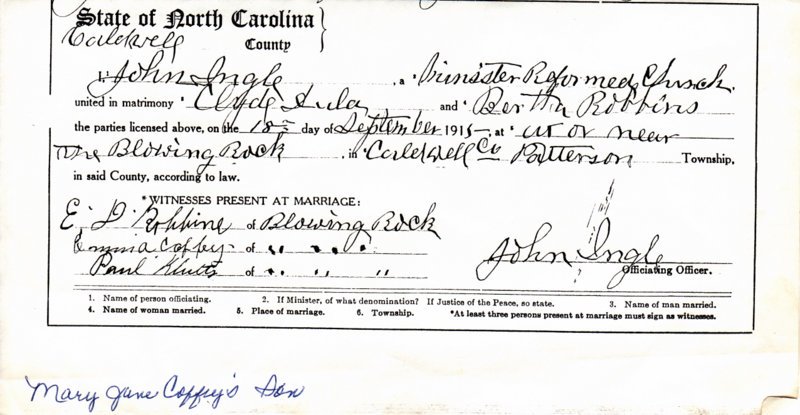 State of North Carolina
Caldwell
County
I, John Ingle, a Minister Reformed Church
united in matrimony Clyde and Bertha Robbins
the parties licensed above, on the 18 day of September 1915, at at or near
The Blowing Rock, in Caldwell Co Patterson Township,
in said County, according to law.
*WITNESSES PRESENT AT MARRIAGE:
E. D. Robbins of Blowing Rock
Emma Coffey of " " "
Paul of " " "
John Ingle
Officiating Officer.
1. Name of person officiating. 2. If Minister, of what denomination? If Justice of the Peace, so state. 3. Name of man married.
4. Name of woman married. 5. Place of marriage. 6. Township. *At least three persons present at marriage must sign as witnesses.
Mary Jane Coffey's Son